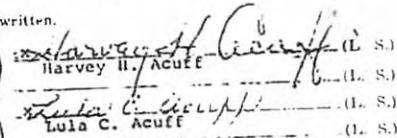 written.
Harvey H. Acuff (L. S.)
Harvey H. Acuff
(L. S.)
Lula C. Acuff (L. S.)
Lula C. Acuff
(L. S.)